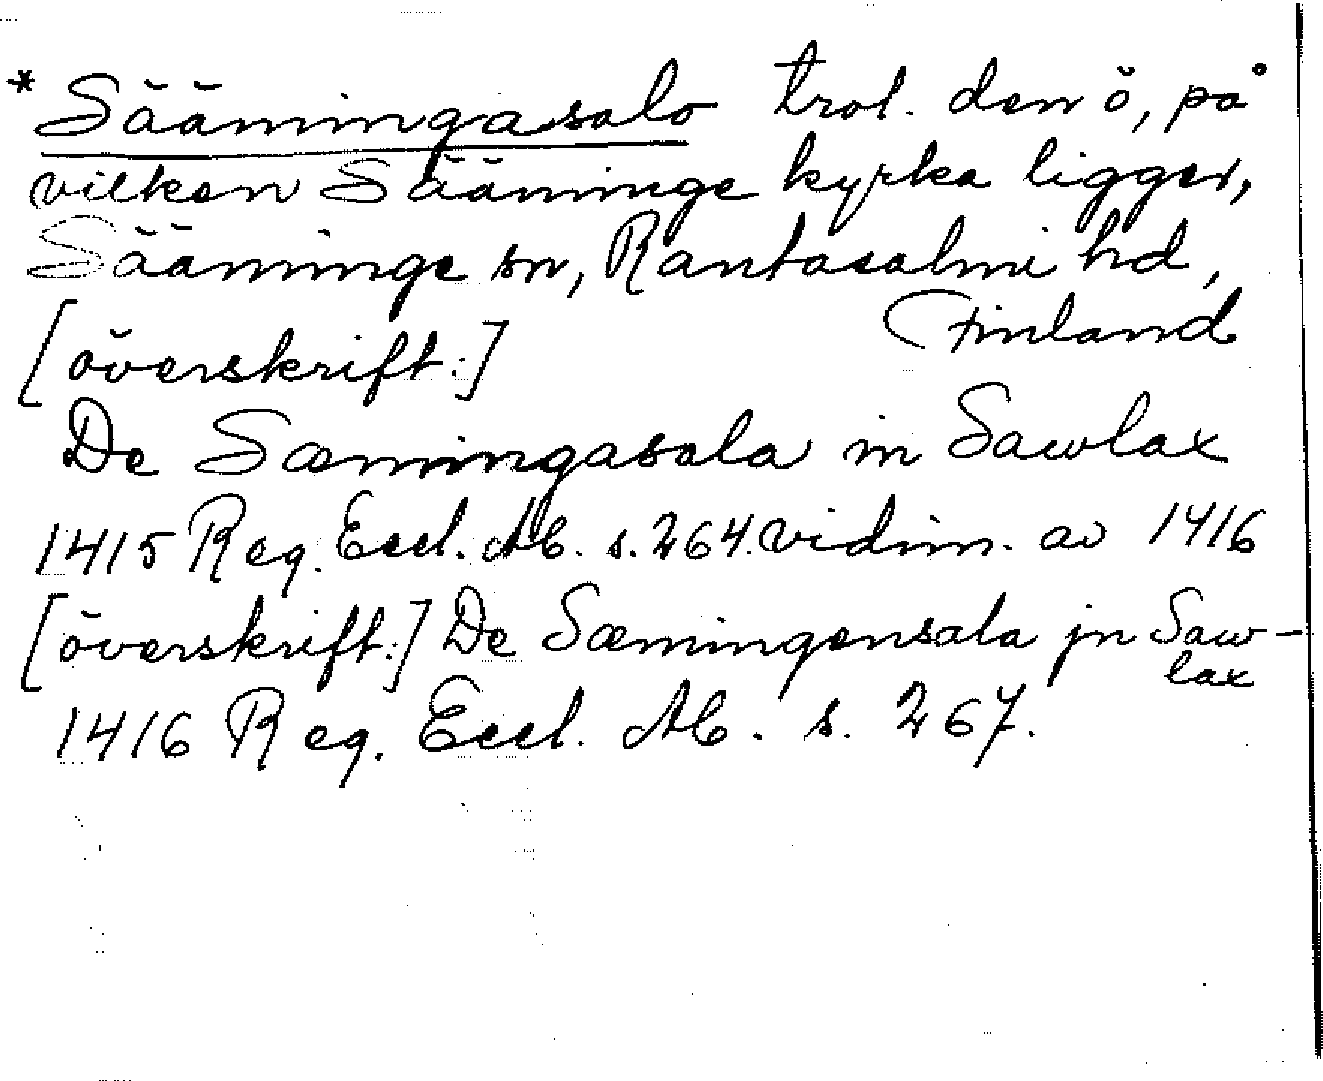 * Säämingasalo trol. den ö, på
vilken Sääminge kyrka ligger,
Sääminge sn, Rantasalmi hd,
Finland
[överskrift:]
De Sæmingasala in Sawlax
1415 Reg. Eccl. Ab. s. 264. vidim. av 1416
[överskrift:] De Sæmingensala jn Saw-
lax
1416 Reg. Eccl. Ab. s. 267.